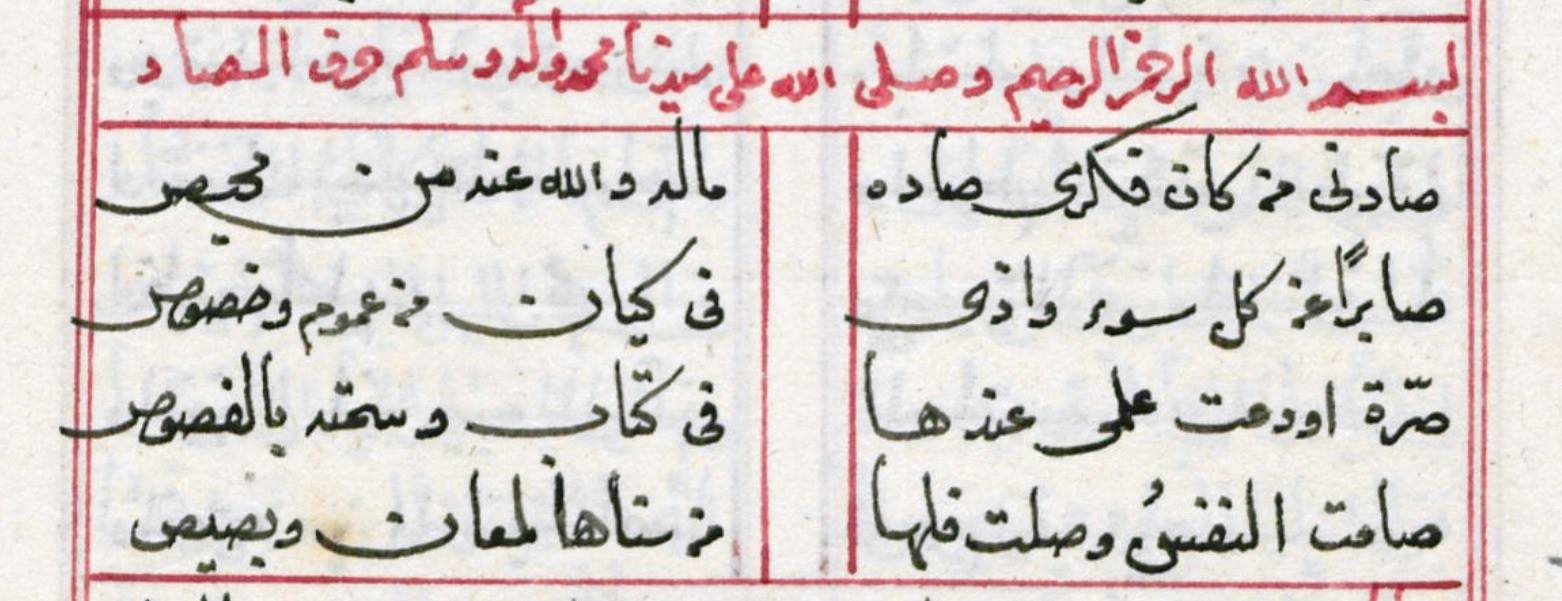 بسم الله الرحمن الرحيم وصلى الله على سيدنا محمد واله وسلم حرف الصاد
صادنى من كان فكرى صاده ماله والله عنه من محيص
صابرًا عن كل سوء واذى فى كيان من عموم وخصوص
صرّة اودعت علمى عندها فى كتاب وسمته بالفصوص
صامت النفسُ وصلت فلها من سناها لمعان وبصيص